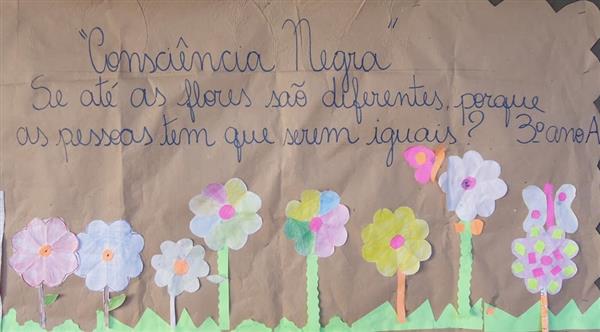 "Consciência Negra"
Se até as flores são diferentes, porque
as pessoas tem que serem iguais? 3º ano A